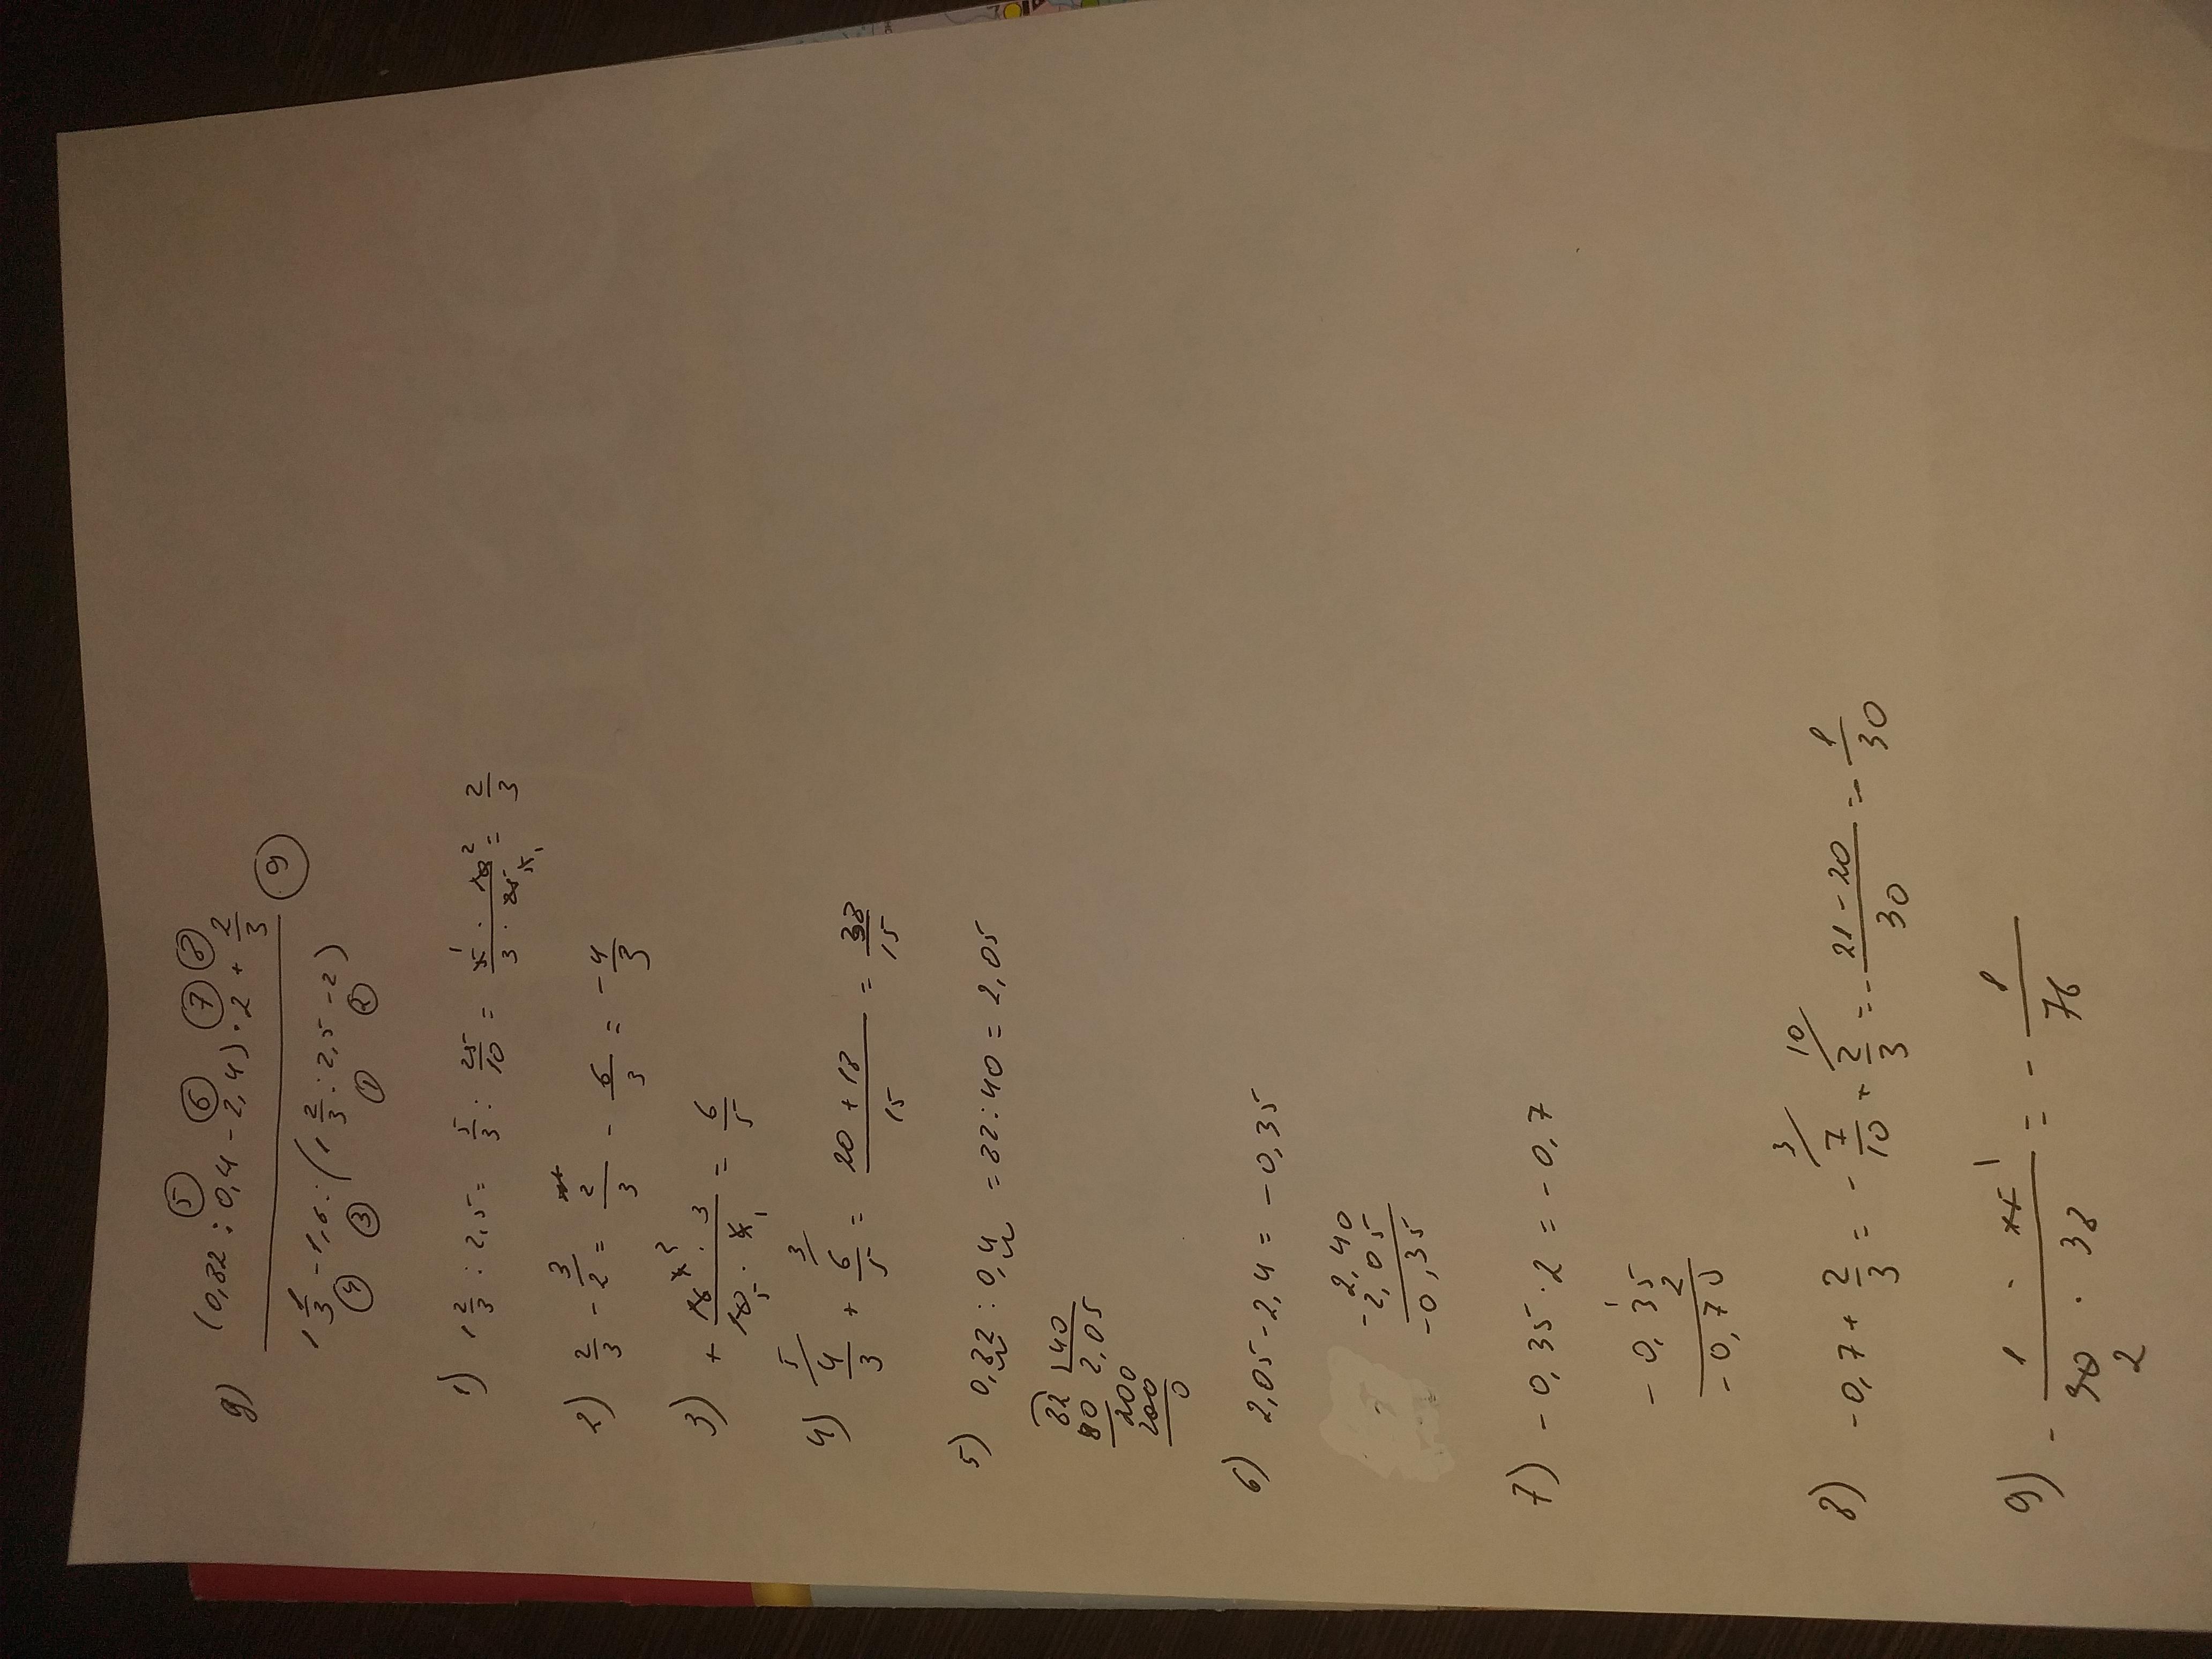 g) (0,82 : 0,4 - 2,4) · 2 + 2/3
5 6 7 8
9
1 1/3 - 1,6 : (1 2/3 : 2,5 - 2)
4 3 1 2
1) 1 2/3 : 2,5 = 5/3 : 25/10 = 5 · 10/3 · 25 = 2/3
2) 2/3 - 2 = 2/3 - 6/3 = - 4/3
3) + 16 · 3/10 · 4 = 6/5
4) 4/3 + 6/5 = 20 + 18/15 = 38/15
5) 0,82 : 0,4 = 82 : 40 = 2,05
82 40
80 2,05
200
200
0
6) 2,05 - 2,4 = - 0,35
- 2,40
2,05
- 0,35
7) - 0,35 · 2 = - 0,7
- 0,35
2
- 0,70
8) - 0,7 + 2/3 = - 7/10 + 2/3 = - 21 - 20/30 = - 1/30
9) - 1 · 15/30 · 38 = - 1/76
2